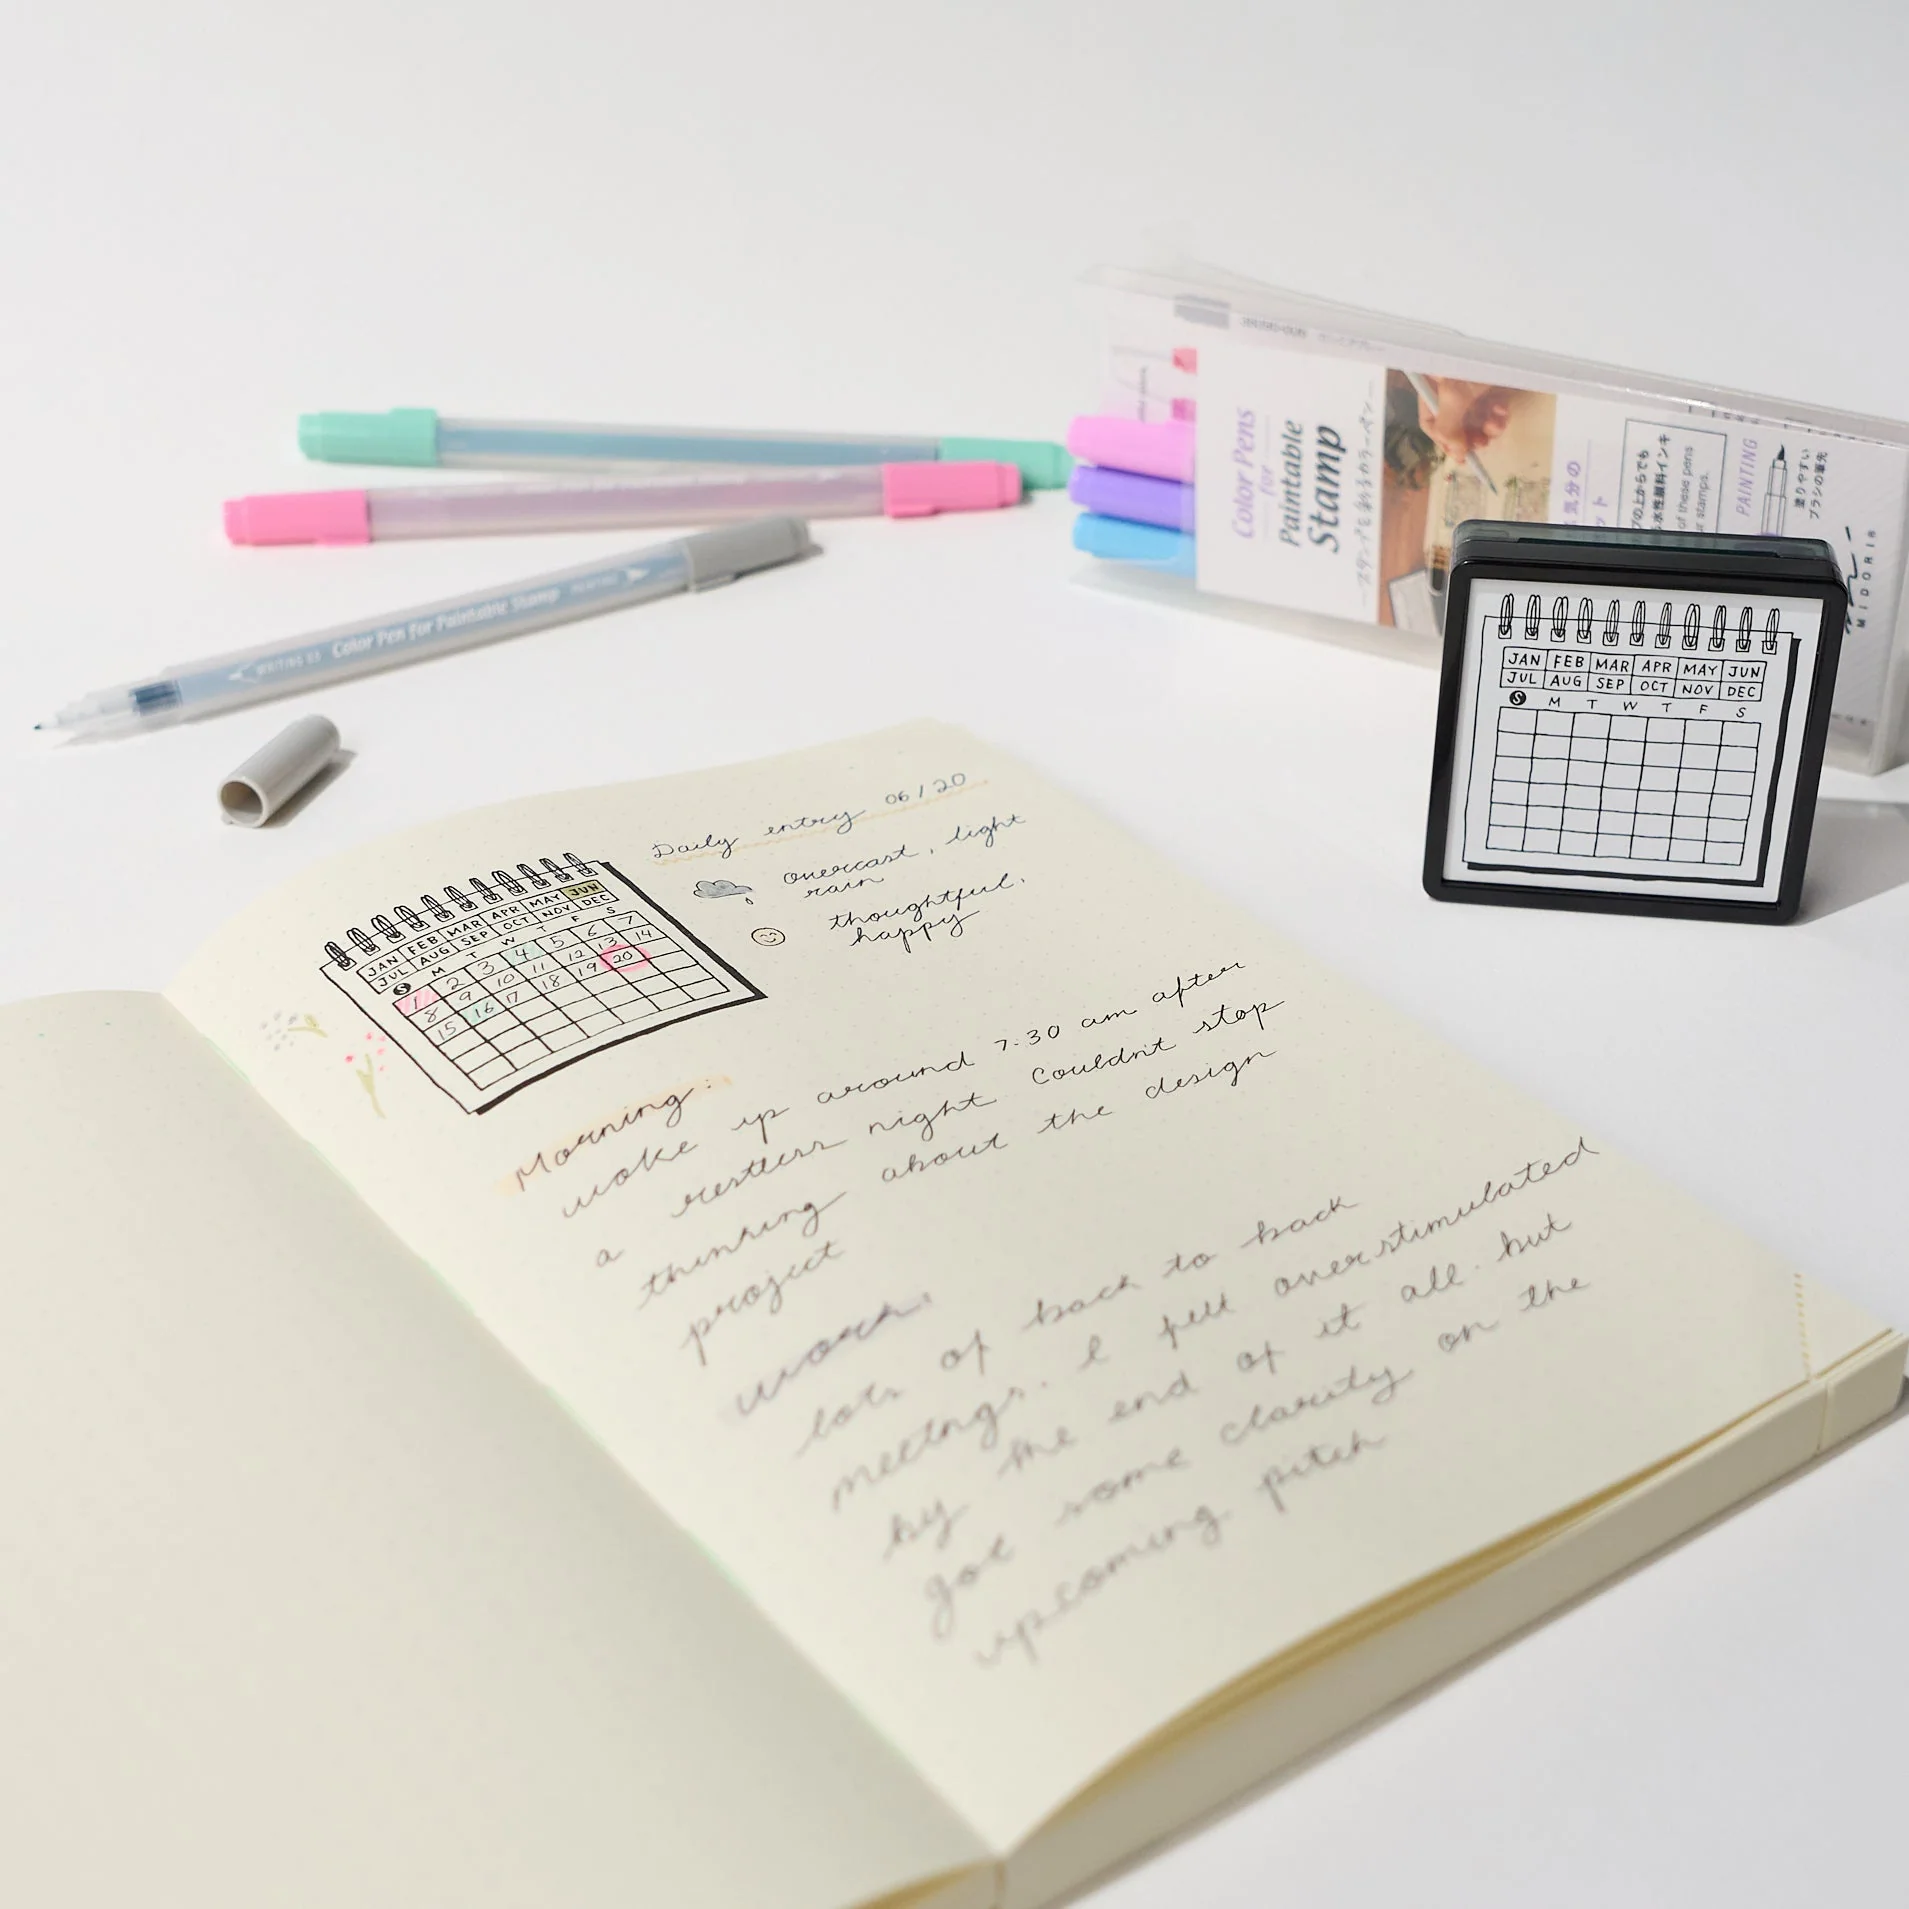 Color Pens
for
Paintable
Stamp
PAINTING
塗りやすい
ブラシの筆先
of these pens
MIDORI
WRITING 03 Color Pen for Paintable Stamp PAINTING
JAN FEB MAR APR MAY JUN
JUL AUG SEP OCT NOV DEC
S M T W T F S
Daily entry 06/20
overcast, light
rain
thoughtful,
happy
JAN FEB MAR APR MAY JUN
JUL AUG SEP OCT NOV DEC
S M T W T F S
1 2 3 4 5 6 7
8 9 10 11 12 13 14
15 16 17 18 19 20
Morning:
woke up around 7:30 am after
a restless night Couldn't stop
thinking about the design
project
work:
lots of back to back
meetings. I felt overstimulated
by the end of it all. but
got some clarity on the
upcoming pitch